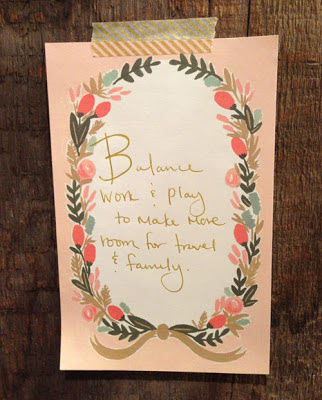 Balance
work & play
to make more
room for travel
& family.